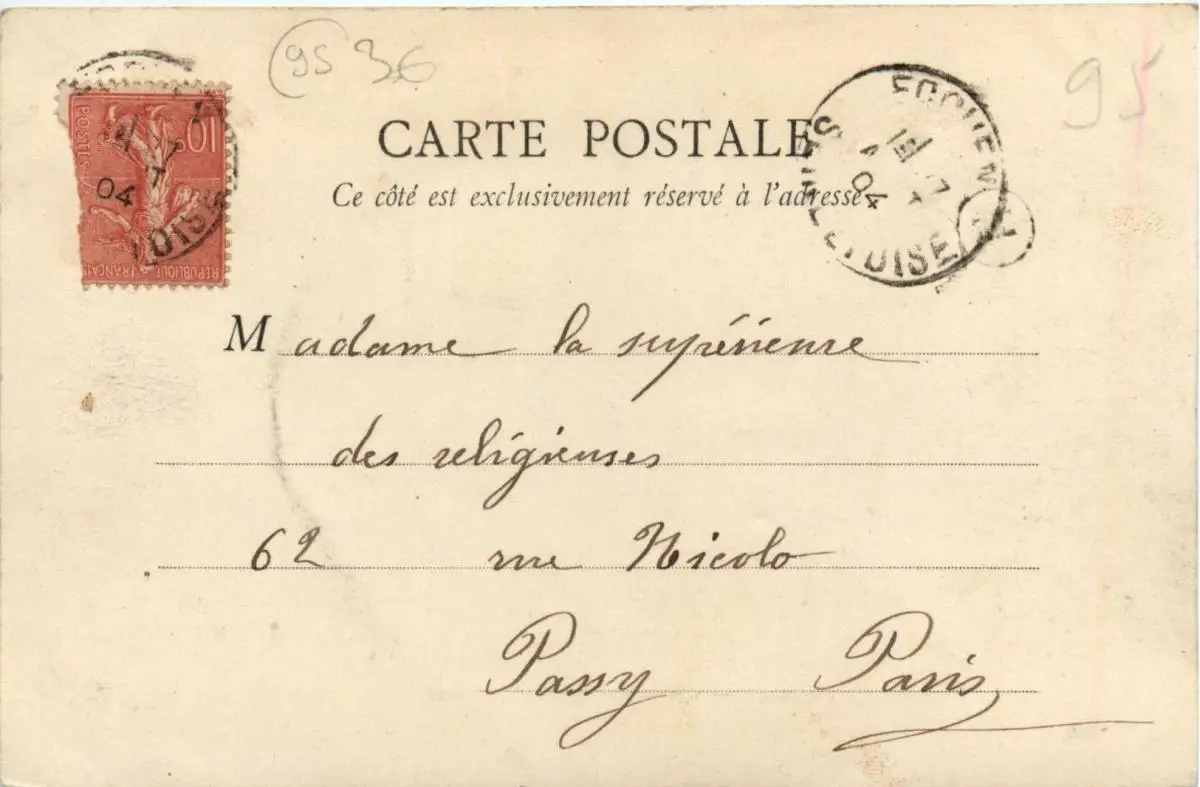 95 36
95
10
POSTES
04
OISE
REPUBLIQUE FRANÇAIS
CARTE POSTALE
Ce côté est exclusivement réservé à l'adresse
ECOUEN
7
04
SEINE ET OISE
Madame la supérieure
des religieuses
62 rue Nicolo
Passy Paris